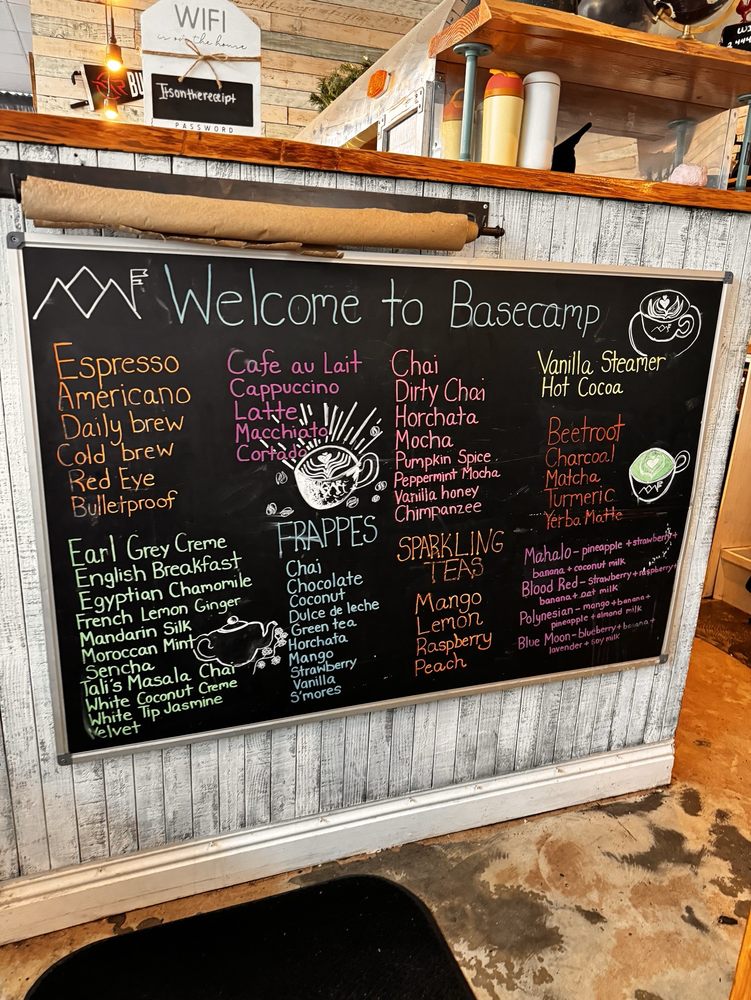 WIFI
is on the house
Itsonthereceipt
PASSWORD
BU
Welcome to Basecamp
Espresso
Americano
Daily brew
Cold brew
Red Eye
Bulletproof
Cafe au Lait
Cappuccino
Latte
Macchiato
Cortado
Chai
Dirty Chai
Horchata
Mocha
Pumpkin Spice
Peppermint Mocha
Vanilla honey
Chimpanzee
Vanilla Steamer
Hot Cocoa
Beetroot
Charcoal
Matcha
Turmeric
Yerba Matte
Earl Grey Creme
English Breakfast
Egyptian Chamomile
French Lemon Ginger
Mandarin Silk
Moroccan Mint
Sencha
Tali's Masala Chai
White Coconut Creme
White Tip Jasmine
Velvet
FRAPPES
Chai
Chocolate
Coconut
Dulce de leche
Green tea
Horchata
Mango
Strawberry
Vanilla
S'mores
SPARKLING
TEAS
Mango
Lemon
Raspberry
Peach
Mahalo - pineapple + strawberry +
banana + coconut milk
Blood Red - strawberry + raspberry +
banana + oat milk
Polynesian - mango + banana +
pineapple + almond milk
Blue Moon - blueberry + banana +
lavender + soy milk